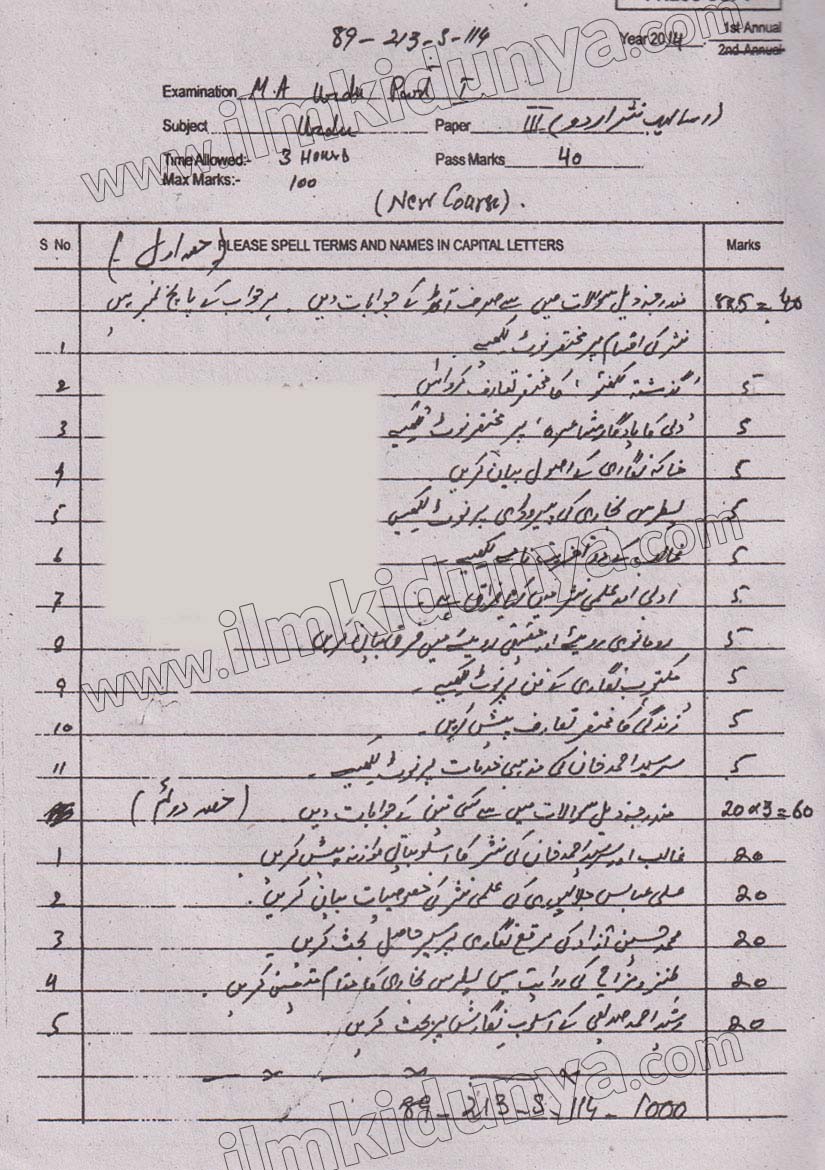 89-213-S-114
Year 2014 1st Annual
2nd Annual
Examination M.A Urdu Part I
Subject Urdu Paper III (اسالیب نثر اردو)
Time Allowed:- 3 Hours Pass Marks 40
Max Marks:- 100
(New Course).
S No PLEASE SPELL TERMS AND NAMES IN CAPITAL LETTERS Marks
(حصہ اول)
مندرجہ ذیل سوالات میں سے صرف آٹھ کے جوابات دیں۔ ہر جواب کے پانچ نمبر ہیں 8x5=40
1 نثر کی اقسام پر مختصر نوٹ لکھیے
2 "گذشتہ لکھنؤ" کا مختصر تعارف کروائیں۔ 5
3 "دلی کا یادگار مشاعرہ" پر مختصر نوٹ لکھیے 5
4 خاکہ نگاری کے اصول بیان کریں۔ 5
5 پطرس بخاری کی پیروڈی پر نوٹ لکھیں 5
6 غالب کے دو لکھیے۔ 5
7 ادبی اور علمی نثر میں کیا فرق ہے۔ 5
8 رومانوی رویے اور حقیقی رویے میں فرق بیان کریں۔ 5
9 مکتوب نگاری کے فن پر نوٹ لکھیے۔ 5
10 "زندگی" کا مختصر تعارف پیش کریں۔ 5
11 سرسید احمد خان کی مذہبی خدمات پر نوٹ لکھیے۔ 5
مندرجہ ذیل سوالات میں سے کسی تین کے جوابات دیں۔ (حصہ دوئم) 20x3=60
1 غالب اور سرسید احمد خان کی نثر کا اسلوبیاتی موازنہ پیش کریں۔ 20
2 علی عباس جلالپوری کی علمی نثر کی خصوصیات بیان کریں۔ 20
3 محمد حسین آزاد کی مرقع نگاری پر سیر حاصل بحث کریں۔ 20
4 طنز و مزاح کی روایت میں پطرس بخاری کا مقام متعین کریں۔ 20
5 رشید احمد صدیقی کے اسلوب نگارش پر بحث کریں۔ 20
89-213-S-114-1000
www.ilmkidunya.com
www.ilmkidunya.com
ilmkidunya.com